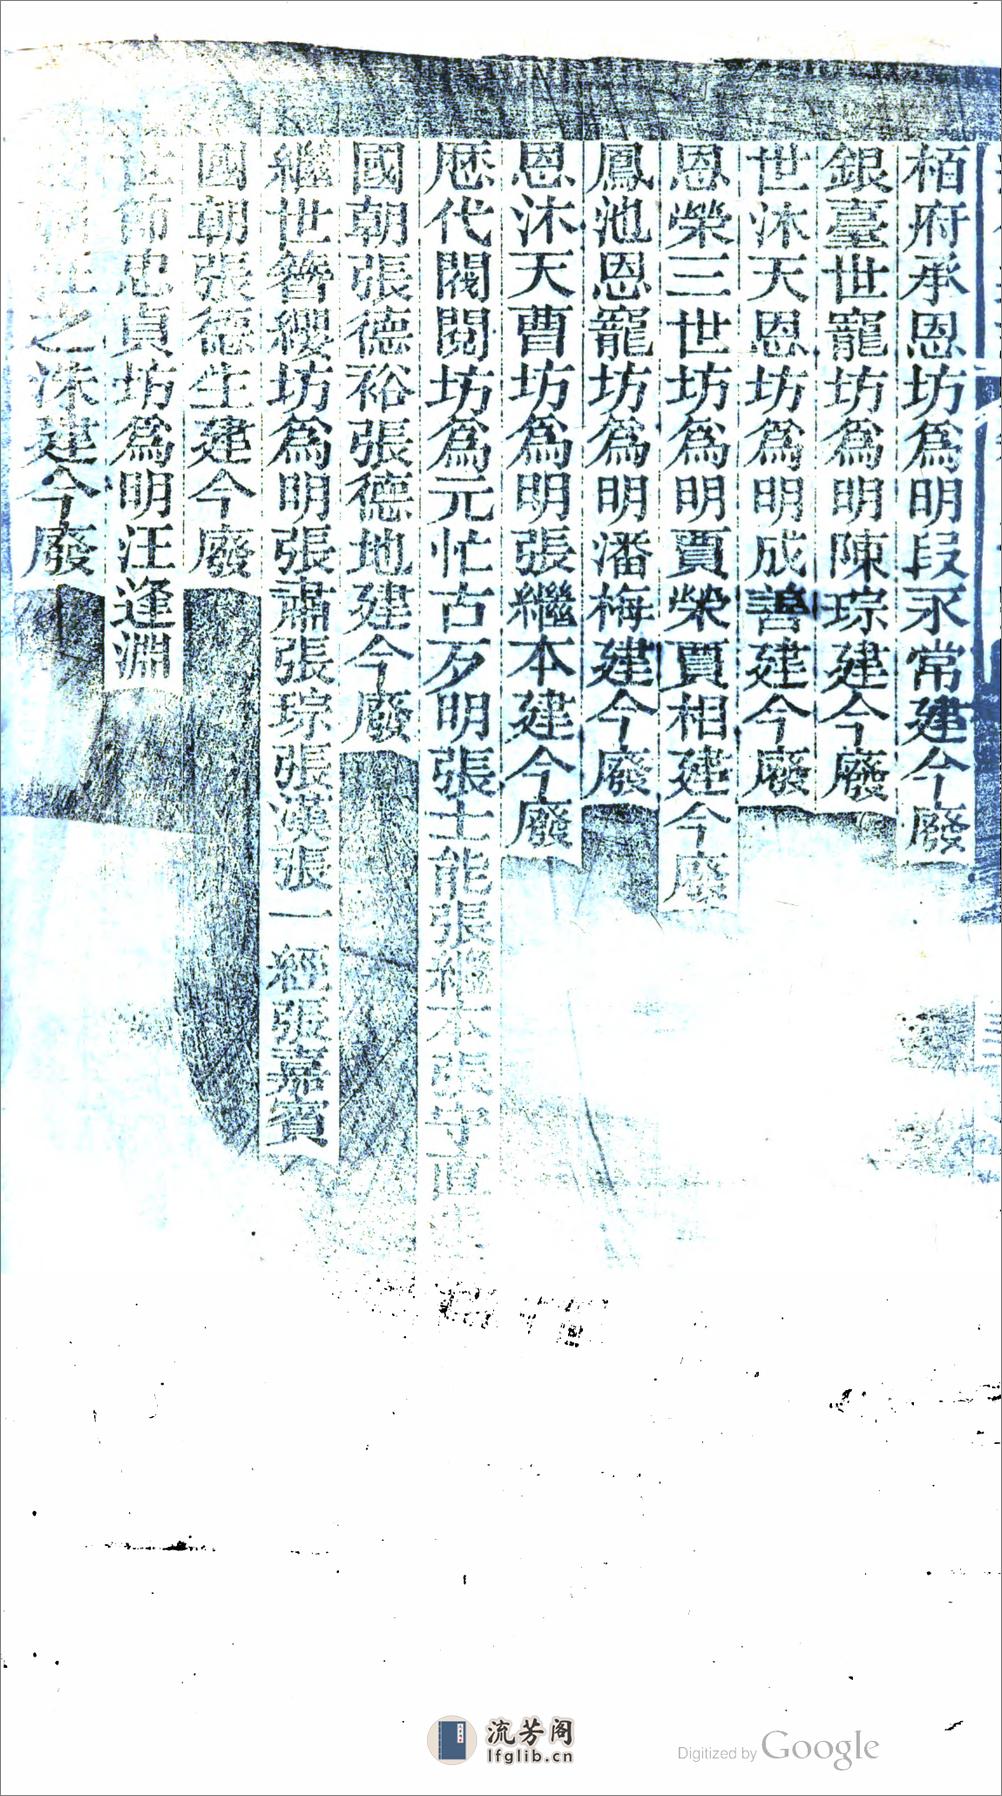 栢府承恩坊爲明段永常建今廢
銀臺世寵坊爲明陳琮建今廢
世沐天恩坊爲明成譱建今廢
恩榮三世坊爲明賈榮賈相建今廢
鳳池恩寵坊爲明潘梅建今廢
恩沐天曹坊爲明張繼本建今廢
歷代閥閱坊爲元忙古歹明張士能張繼本張守直
國朝張德裕張德地建今廢
繼世簪纓坊爲明張肅張琮張漢張一經張嘉賓
國朝張德生建今廢
世節忠貞坊爲明汪逢淵
國朝汪之洙建今廢
流芳阁
lfglib.cn
Digitized by Google